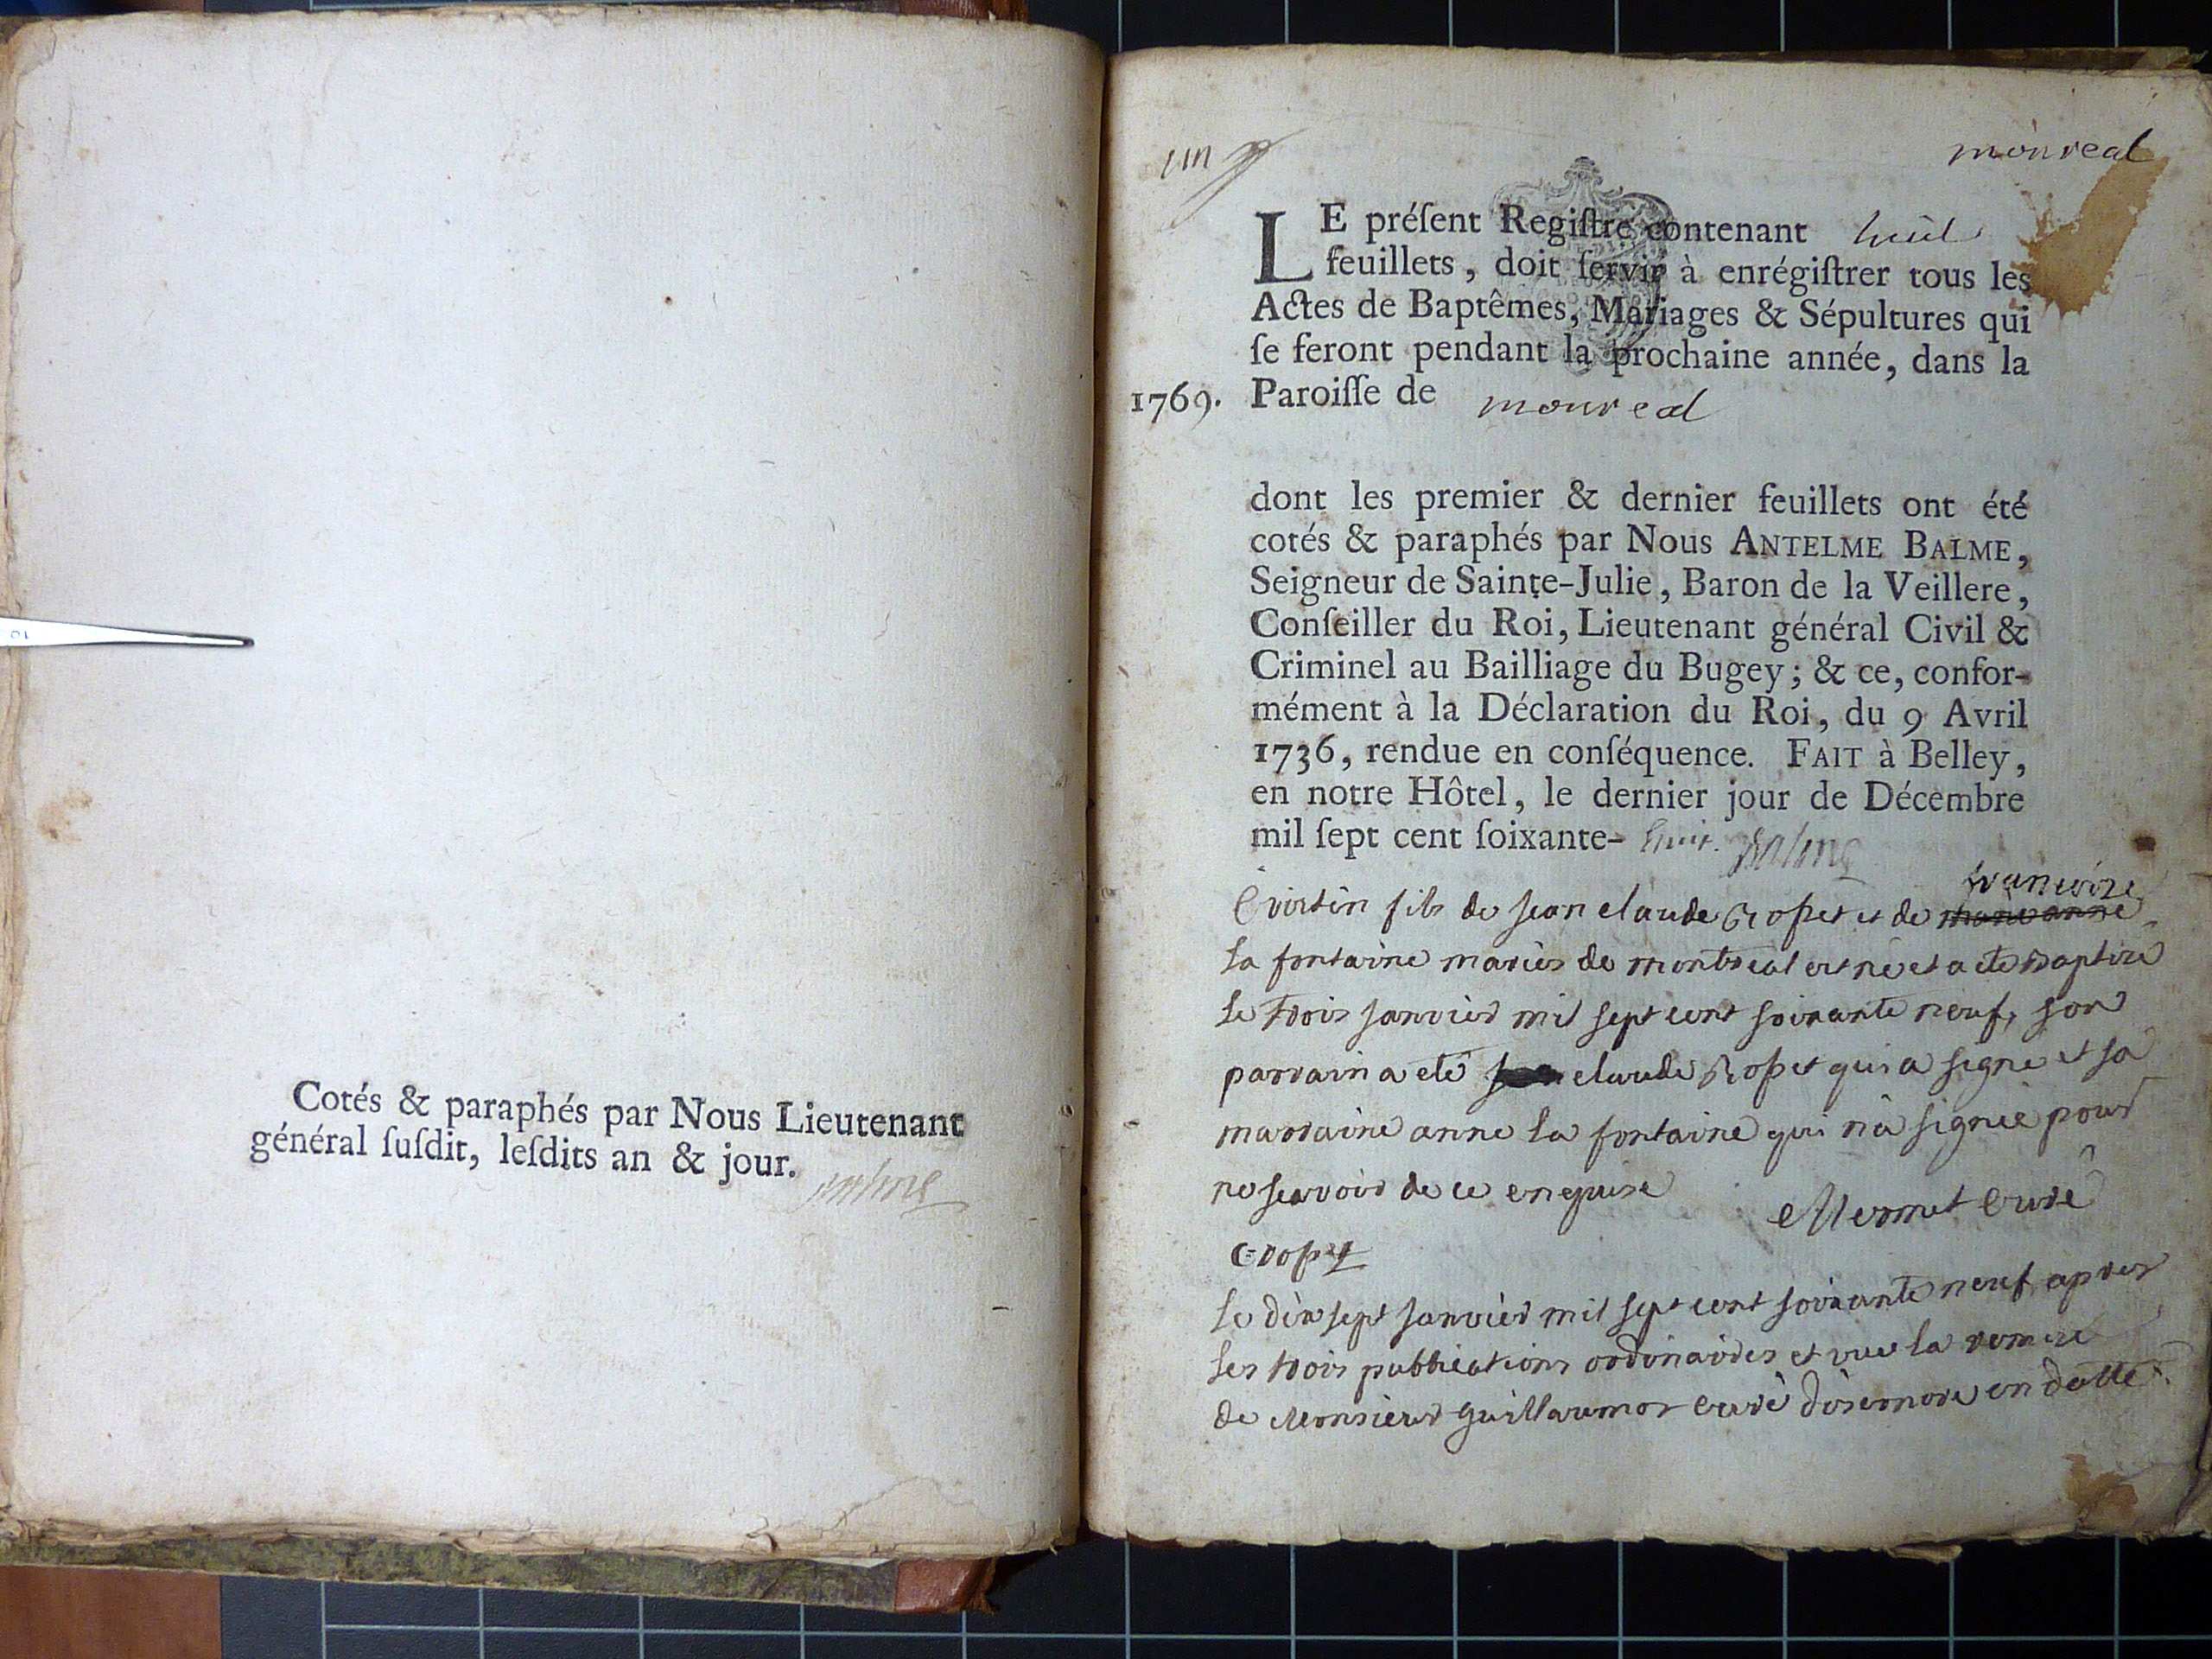 Cotés & paraphés par Nous Lieutenant
général ſuſdit, leſdits an & jour.
Balme
un
monreal
LE préſent Regiſtre contenant huit
feuillets, doit ſervir à enrégiſtrer tous les
Actes de Baptêmes, Mariages & Sépultures qui
ſe feront pendant la prochaine année, dans la
1769. Paroiſſe de monreal
dont les premier & dernier feuillets ont été
cotés & paraphés par Nous ANTELME BALME,
Seigneur de Sainte-Julie, Baron de la Veillere,
Conſeiller du Roi, Lieutenant général Civil &
Criminel au Bailliage du Bugey; & ce, confor-
mément à la Déclaration du Roi, du 9 Avril
1736, rendue en conſéquence. FAIT à Belley,
en notre Hôtel, le dernier jour de Décembre
mil ſept cent ſoixante- huit. Balme
francoise
fils de jean claude Gropet et de marie anne
la fontaine mariés de montreal est né et a eté baptisé
le trois janvier mil sept cent soixante neuf, son
parrain a eté claude Gropet qui a signé et sa
marraine anne la fontaine qui n'a signée pour
ne scavoir de ce enquise
Mermet Curé
Gropet
le dix sept janvier mil sept cent soixante neuf apres
les trois publications ordinaires et vue la remise
de Monsieur guillaumot curé disernore en datte